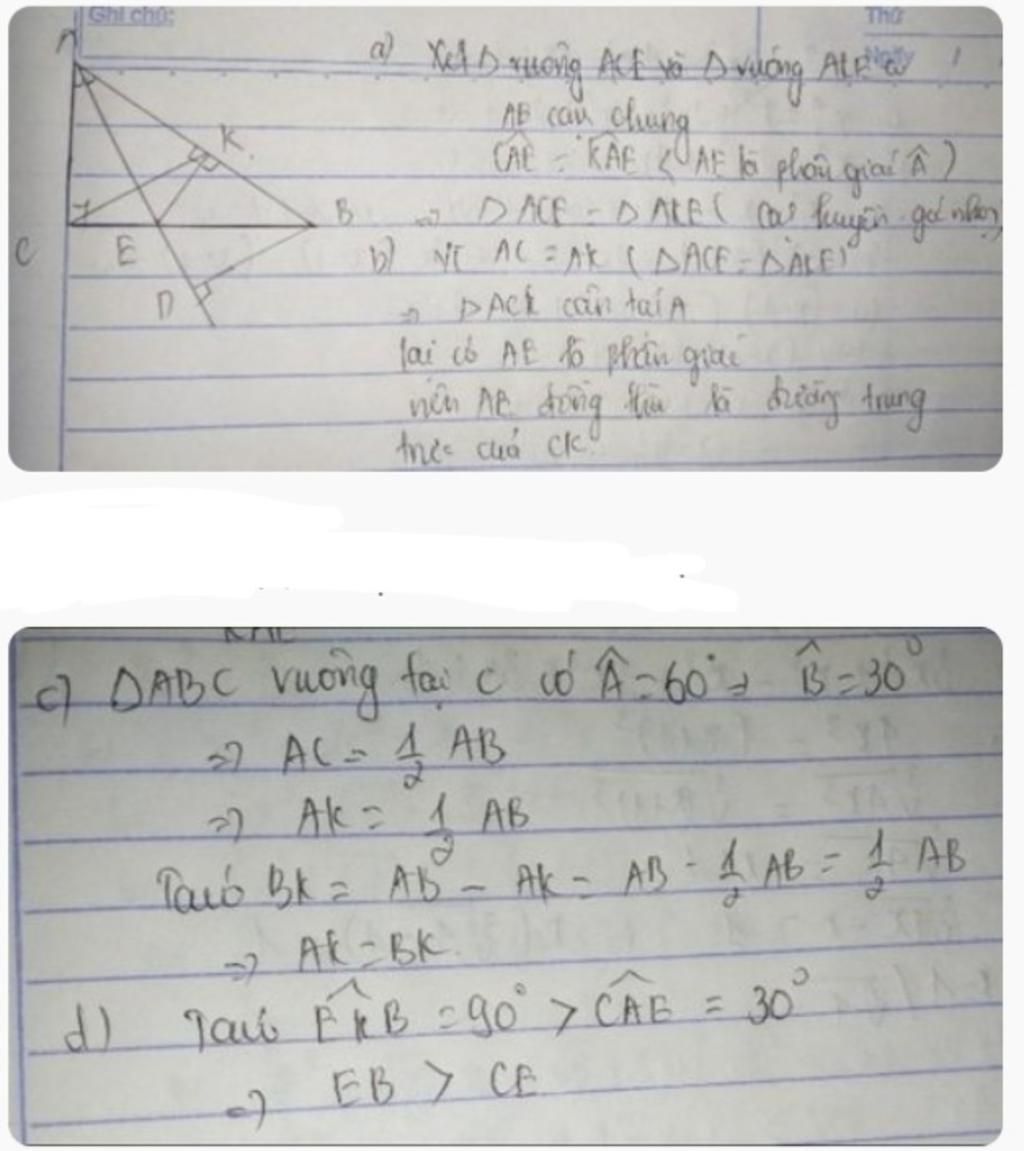 Ghi chú:
Thứ
Ngày
a) Xét Δ vuông ACE và Δ vuông AKE có
AB cạn chung
CAE = KAE (AE là phân giái Â)
K
B
C
E
D
=> ΔACE = ΔAKE ( cạ huyền góc nhọn)
b) Vì AC = AK (ΔACE = ΔAKE)
=> ΔACK cân tại A
lại có AE là phân giái
nên AE đồng thời là đường trung
trực của CK
c) ΔABC vuông tại C có Â = 60° => B̂ = 30°
=> AC = 1/2 AB
=> AK = 1/2 AB
Ta có BK = AB - AK = AB - 1/2 AB = 1/2 AB
=> AK = BK.
d) Ta có EKB = 90° > CAE = 30°
=> EB > CE